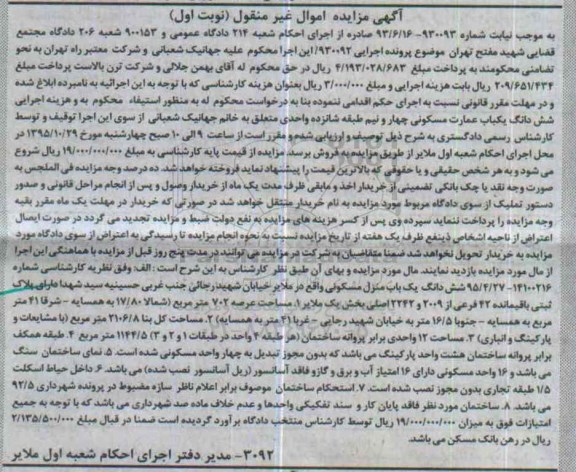 آگهی مزایده اموال غیر منقول (نوبت اول)
به موجب نیابت شماره ۹۳۰۰۹۳-۹۳/۶/۱۶ صادره از اجرای احکام شعبه ۲۱۴ دادگاه عمومی و ۹۰۰۱۵۳ شعبه ۲۰۶ دادگاه مجتمع
قضایی شهید مفتح تهران موضوع پرونده اجرایی ۹۳۰۰۹۲/ این اجرا محکوم علیه جهانیک شعبانی و شرکت معتبر راه تهران به نحو
تضامنی محکومند به پرداخت مبلغ ۴/۱۹۳/۰۲۸/۶۸۳ ریال در حق محکوم له آقای بهمن جلالی و شرکت ترن بالاست پرداخت مبلغ
۲۰۹/۶۵۱/۴۳۴ ریال بابت هزینه اجرایی و مبلغ ۳/۰۰۰/۰۰۰ ریال بعنوان هزینه کارشناسی که با توجه به این اجرائیه به نامبرده ابلاغ شده
و در مهلت مقرر قانونی نسبت به اجرای حکم اقدامی ننموده بنا به درخواست محکوم له به منظور استیفاء محکوم به و هزینه اجرایی
شش دانگ یکباب عمارت مسکونی چهار و نیم طبقه شانزده واحدی متعلق به خانم جهانیک شعبانی از سوی این اجرا توقیف و توسط
کارشناس رسمی دادگستری به شرح ذیل توصیف و ارزیابی شده و مقرر است از ساعت ۹ الی ۱۰ صبح چهارشنبه مورخ ۱۳۹۵/۱۰/۲۹ در
محل اجرای احکام شعبه اول ملایر از طریق مزایده به فروش برسد مزایده از قیمت پایه کارشناسی به مبلغ ۱۹/۰۰۰/۰۰۰/۰۰۰ ریال شروع
می شود و به هر شخص حقیقی و یا حقوقی که بالاترین قیمت را پیشنهاد نماید فروخته خواهد شد. ده درصد وجه مزایده فی المجلس به
صورت وجه نقد یا چک بانکی تضمینی از خریدار اخذ و مابقی ظرف مدت یک ماه از خریدار وصول و پس از انجام مراحل قانونی و صدور
دستور تملیک از سوی دادگاه مربوط مورد مزایده به نام خریدار منتقل خواهد شد در صورتی که خریدار در مهلت یک ماه مقرر بقیه
وجه مزایده را پرداخت ننماید سپرده وی پس از کسر هزینه های مزایده به نفع دولت ضبط و مزایده تجدید می گردد در صورت ایصال
اعتراض از ناحیه اشخاص ذینفع ظرف یک هفته از تاریخ مزایده نسبت به نحوه انجام مزایده تا رسیدگی به اعتراض از سوی دادگاه مورد
مزایده به خریدار تحویل نخواهد شد ضمنا متقاضیان به شرکت در مزایده می توانند در مدت پنج روز قبل از مزایده با هماهنگی این اجرا
از مال مورد مزایده بازدید نمایند. مال مورد مزایده و بهای آن طبق نظر کارشناس به این شرح است: الف: وفق نظریه کارشناسی شماره
۱۴۱۰۰۲۱۶-۹۵/۴/۲۷ شش دانگ یک باب منزل مسکونی واقع در ملایر خیابان شهید رجائی جنب غربی حسینیه سید شهدا دارای پلاک
ثبتی باقیمانده ۴۲ فرعی از ۲۰۰۹ و ۲۲۴۲ اصلی بخش یک ملایر ۱. مساحت عرصه ۷۰۲ متر مربع (شمالا ۱۷/۸۰ به همسایه - شرقا ۴۱ متر
مربع به همسایه - جنوبا ۱۶/۵ متر به خیابان شهید رجایی - غربا ۴۱ متر به همسایه) ۲. مساحت کل بنا ۲۱۰۶/۸ متر مربع (با مشایعات و
پارکینگ و انباری) ۳. مساحت ۱۲ واحدی برابر پروانه ساختمان (هر طبقه ۴ واحد در طبقات ۱ و ۲ و ۳) ۱۱۴۴/۵ متر مربع ۴. طبقه همکف
برابر پروانه ساختمان هشت واحد پارکینگ می باشد که بدون مجوز تبدیل به چهار واحد مسکونی شده است. ۵. نمای ساختمان سنگ
می باشد و ۱۶ واحد مسکونی دارای ۱۶ امتیاز آب و برق و گاز و فاقد آسانسور (ریل آسانسور نصب شده) می باشد. ۶. داخل حیاط اسکلت
۱/۵ طبقه تجاری بدون مجوز نصب شده است. ۷. استحکام ساختمان موصوف برابر اعلام ناظر سازه مضبوط در پرونده شهرداری ۹۲/۵
می باشد. ۸. ساختمان مورد نظر فاقد پایان کار و سند تفکیکی واحدها و عدم خلاف ماده صد شهرداری می باشد که با توجه به جمیع
امتیازات فوق به میزان ۱۹/۰۰۰/۰۰۰/۰۰۰ ریال توسط کارشناس منتخب دادگاه برآورد گردیده است ضمنا در قبال مبلغ ۲/۱۳۵/۵۰۰/۰۰۰
ریال در رهن بانک مسکن می باشد.
۳۰۹۲- مدیر دفتر اجرای احکام شعبه اول ملایر